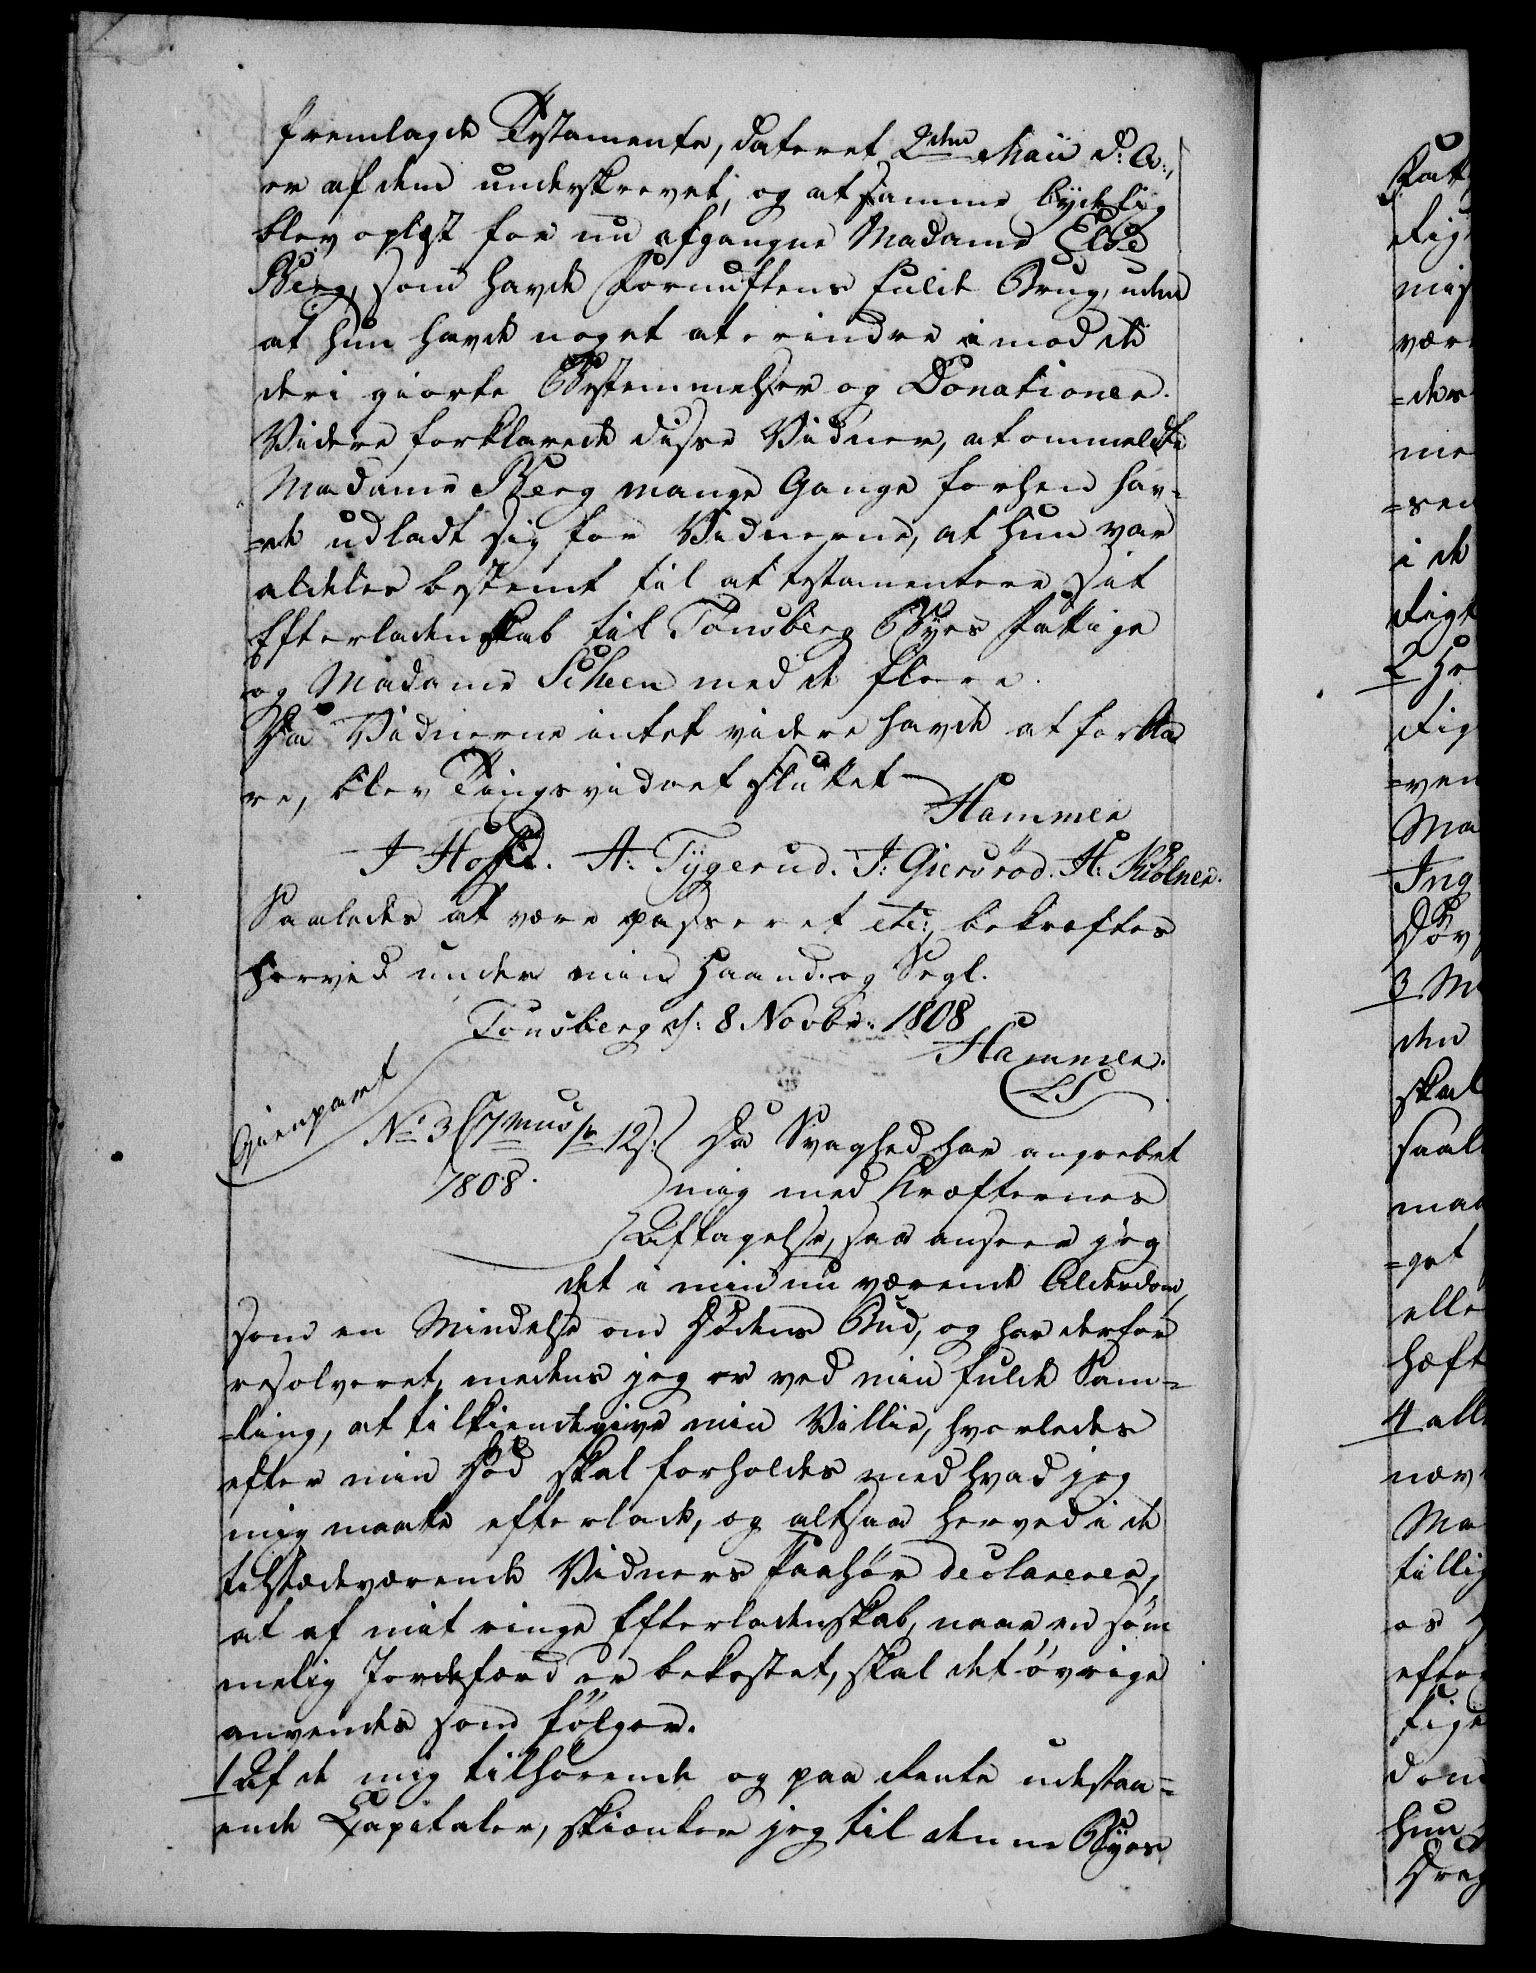 fremlagde Testamente, dateret 2den Maii d: A:,
er af dem underskrevet, og at samme tydelig
blev oplæst for nu afgangne Madame Else
Berg, som havde Fornuftens fulde Brug, uden
at hun havde noget at erindre imod de
deri giorte Bestemmelser og Donationer.
Videre forklarede disse Vidner, at ommeldte
Madame Berg mange Gange forhen hav-
=de udladt sig for Vidnerne, at hun var
aldeles bestemt til at testamentere sit
Efterladenskab til Tønsberg Byes Fattige
og Madame Scheen med de flere.
Da Vidnerne intet videre havde at forkla
re, blev Tingsvidnet sluttet
Hammer
J Hoff. A: Tygerud. J: Giersrød. H: Kiølner.
Saaledes at være passeret etc:, bekræftes
herved under min Haand og Segl.
Tønsberg d: 8 Novbr: 1808
Hammer.
LS
Gienpart
No 3 7mus 12 s: Da Svaghed har angrebet
1808. mig med Kræfternes
Aftagelse, saa anseer jeg
det i min nu værende Alderdom,
som en Mindelse om Dødens Bud, og har derfor
resolveret, medens jeg er ved min fulde Sam-
=ling, at tilkiendegive min Villie, hvorledes
efter min Død skal forholdes med hvad jeg
mig maatte efterlade, og altsaa herved i de
tilstædeværende Vidners Paahør declarerer,
at af mit ringe Efterladenskab, naar en søm
melig Jordefærd er bekostet, skal det øvrige
anvendes som følger.
1 Af de mig tilhørende og paa Rente udestaa-
ende Capitaler, skiænker jeg til denne Byes